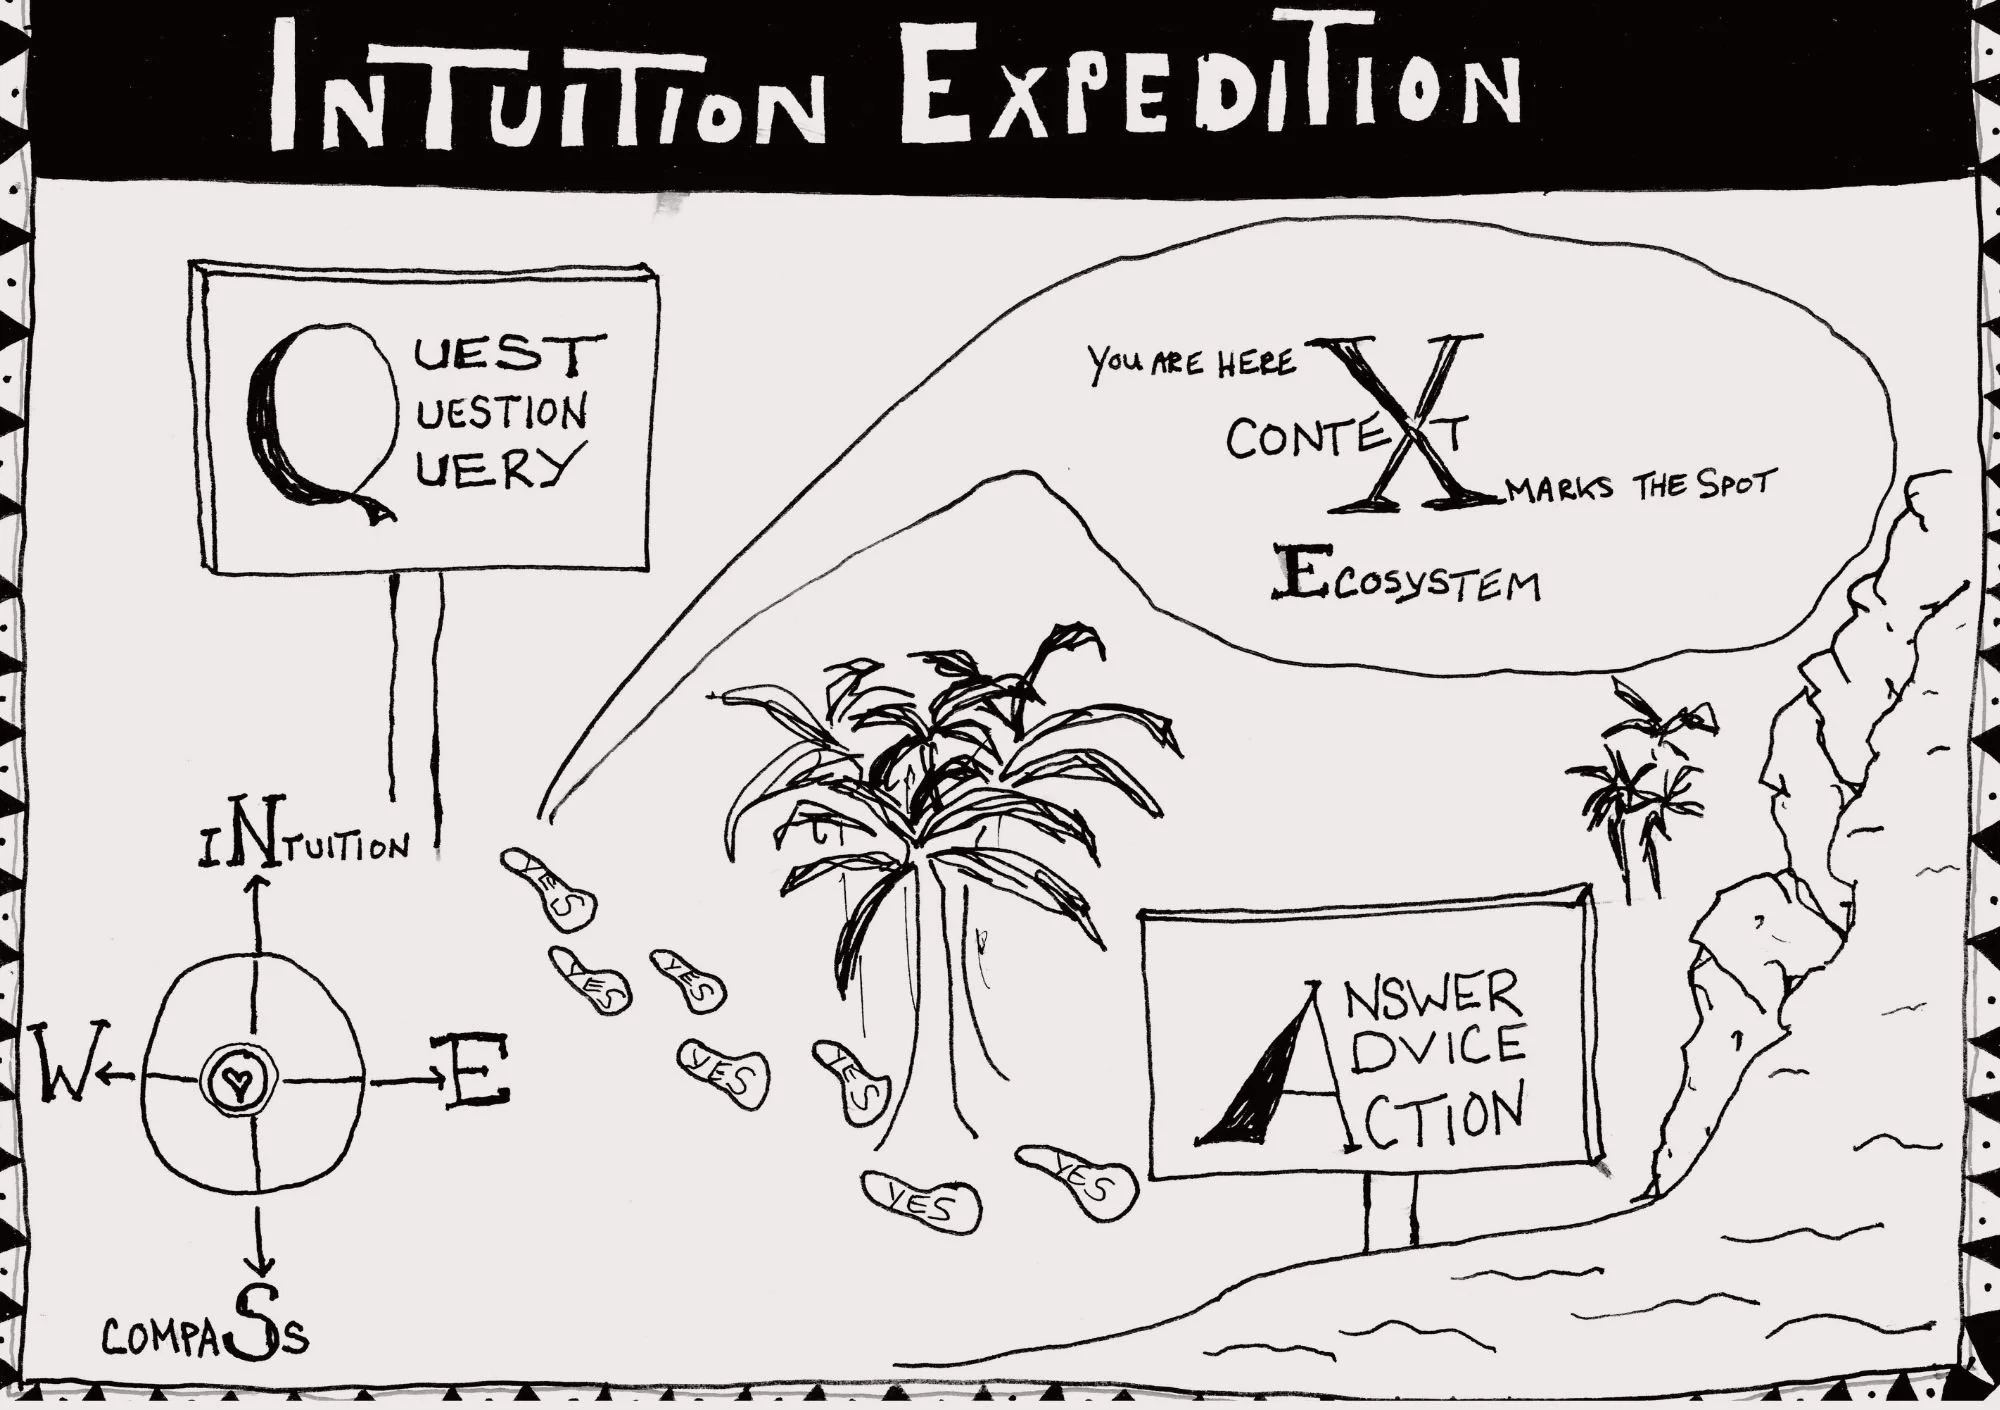 INTUITION EXPEDITION
QUEST
QUESTION
QUERY
YOU ARE HERE X
CONTEXT
X MARKS THE SPOT
ECOSYSTEM
INTUITION
W
E
COMPASS
YES
YES
YES
YES
YES
YES
YES
ANSWER
ADVICE
ACTION